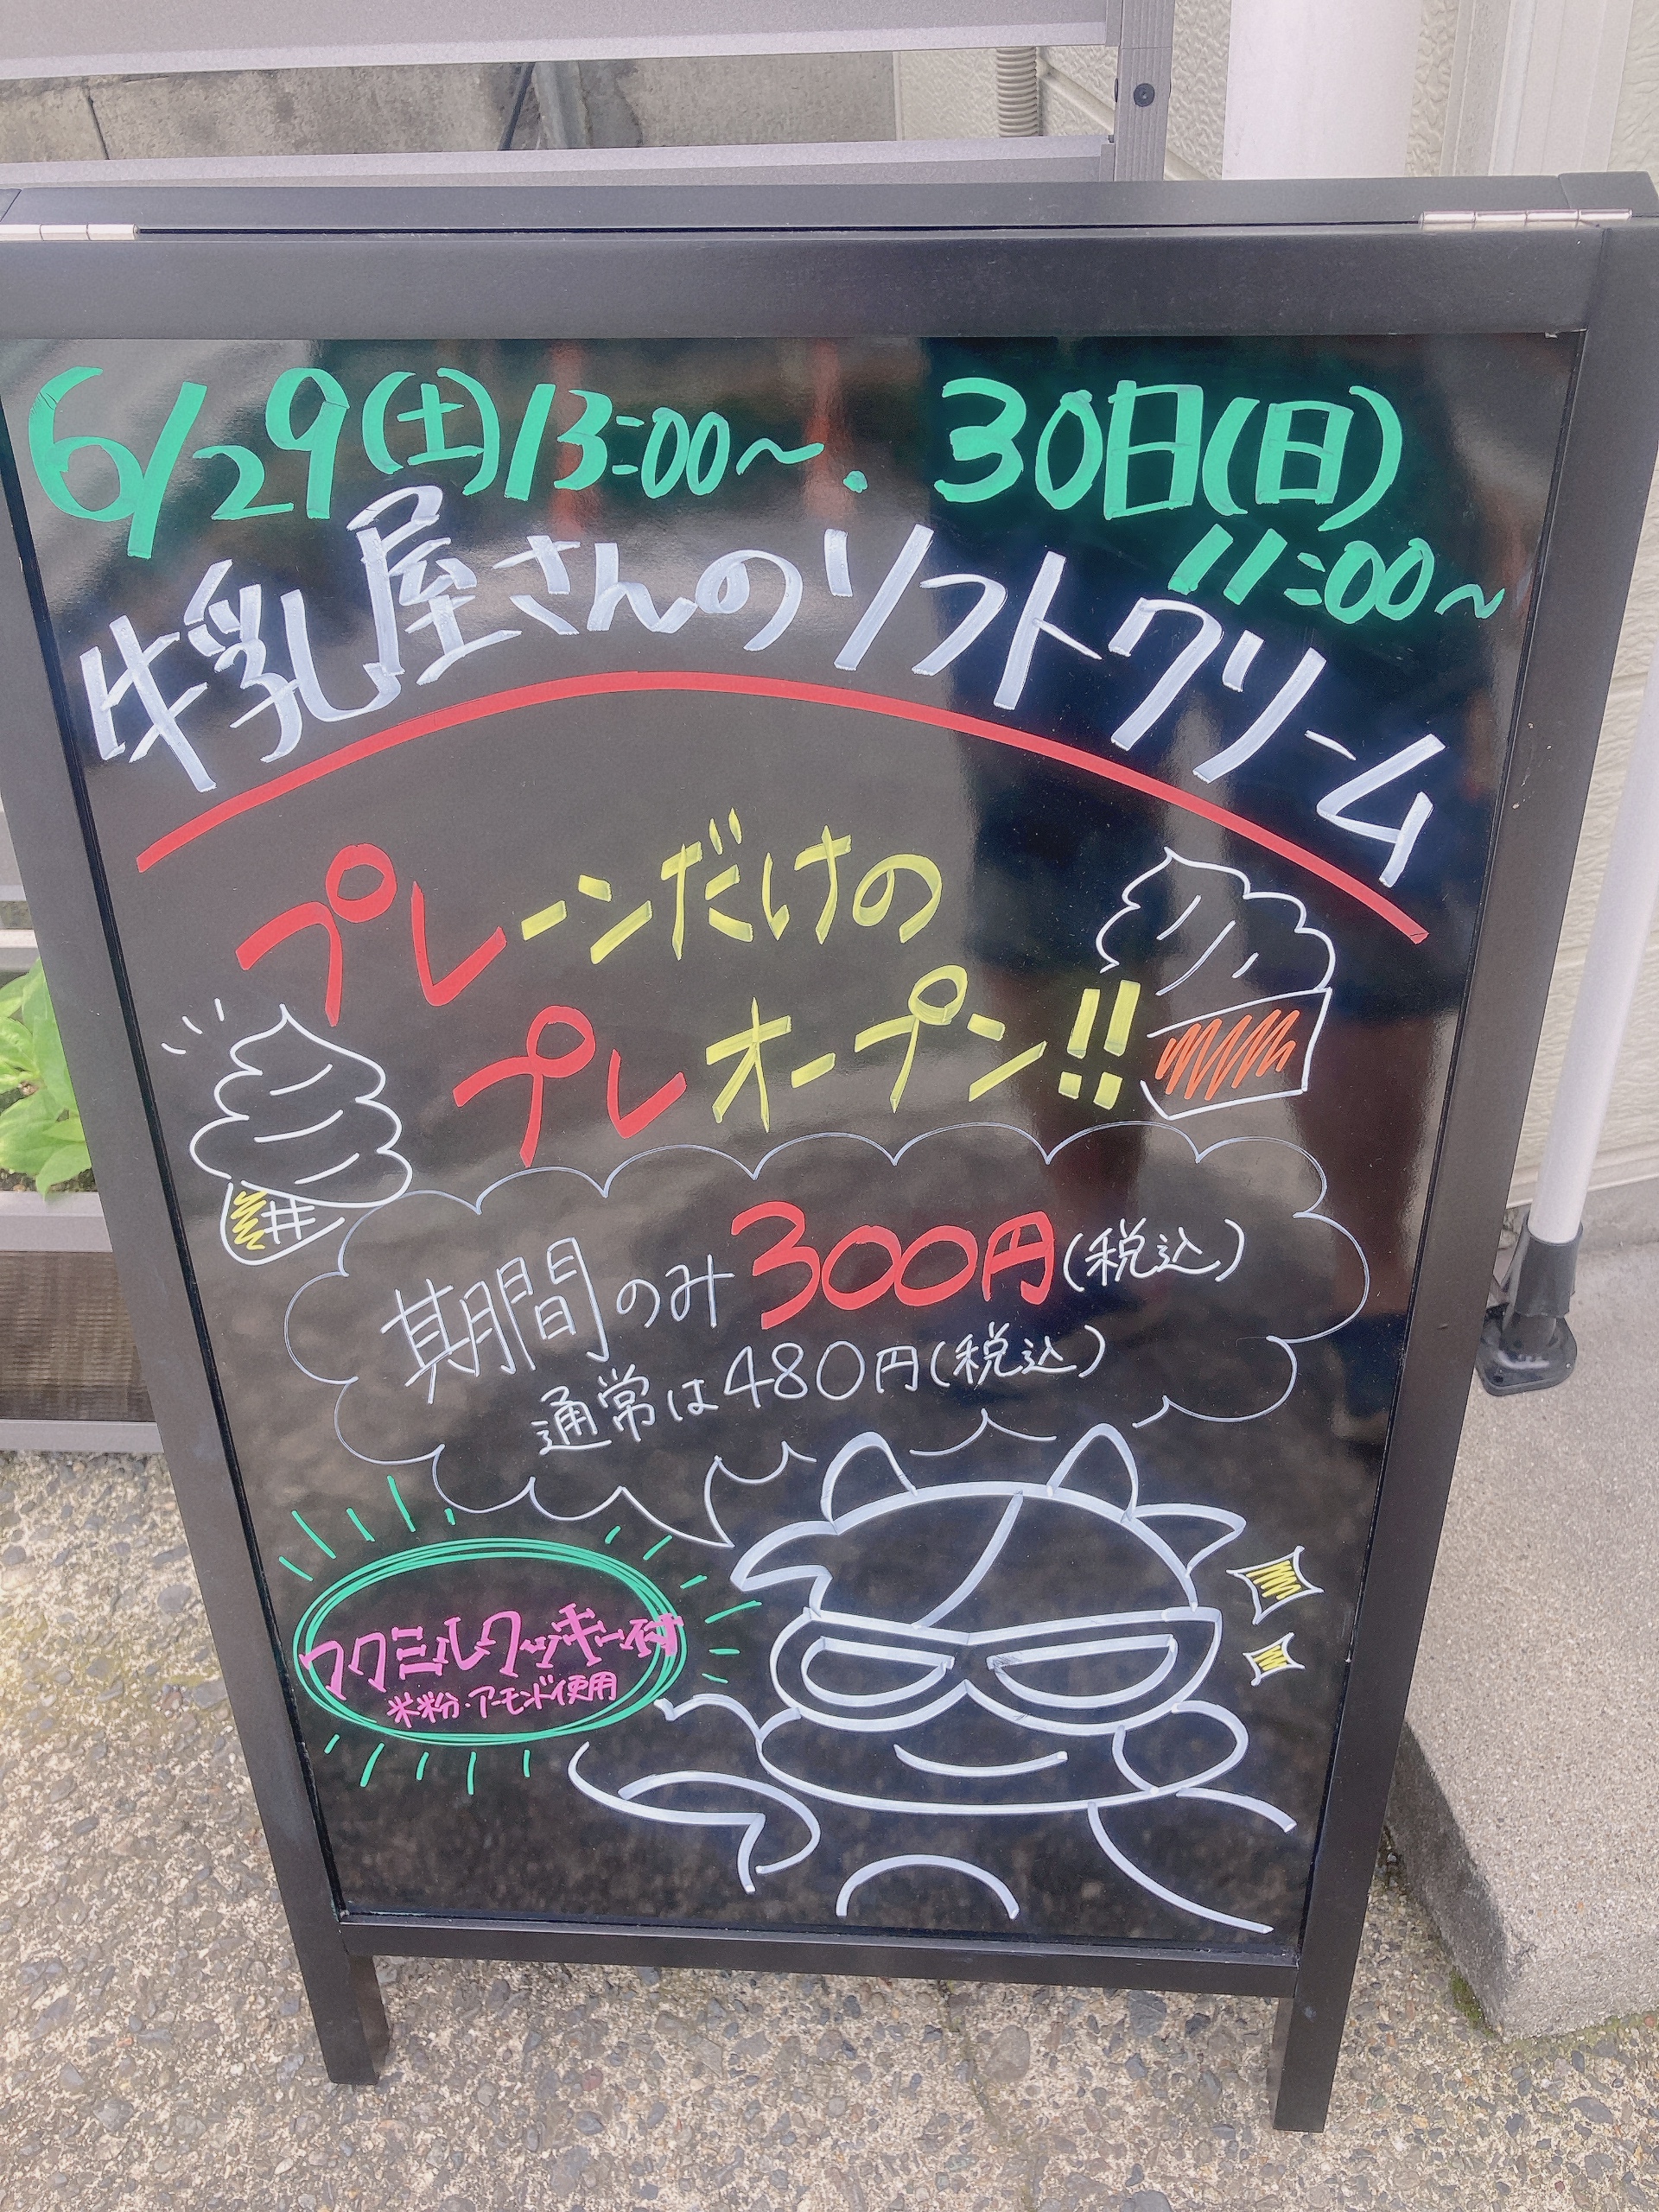 6/29(土)13:00～.30日(日)
11:00～
牛乳屋さんのソフトクリーム
プレーンだけの
プレオープン!!
期間のみ300円(税込)
通常は480円(税込)
フクミルクッキー付
米粉・アーモンド使用